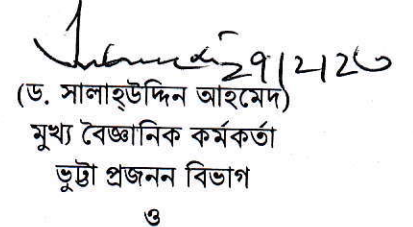 29/2/20
(ড. সালাহ্উদ্দিন আহমেদ)
মুখ্য বৈজ্ঞানিক কর্মকর্তা
ভুট্টা প্রজনন বিভাগ
ও